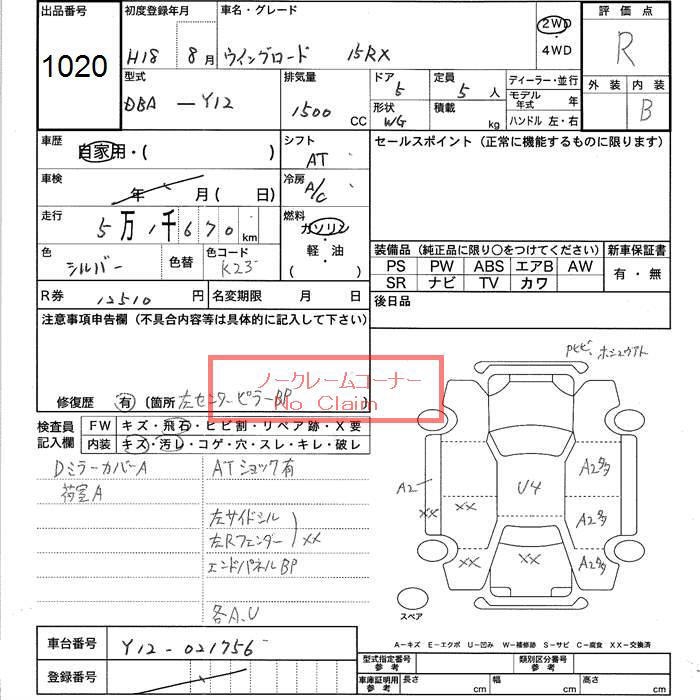 出品番号 初度登録年月 車名・グレード 2WD ・ 4WD 評価点
1020 H18 8月 ウイングロード 15RX R
型式 排気量 ドア 5 定員 5 人 ディーラー・並行 外装 内装
DBA-Y12 1500 CC 形状 WG 積載 kg モデル年式 年 B
ハンドル 左・右
車歴 自家用・( ) シフト AT セールスポイント(正常に機能するものに限ります)
車検 年 月( 日) 冷房 A/C
走行 5万1千670km 燃料 ガソリン ・ 軽・油 ( )
色 シルバー 色替 色コード K23 装備品(純正品に限り○をつけてください) 新車保証書
PS PW ABS エアB AW 有・無
SR ナビ TV カワ
R券 12510円 名変期限 月 日 後日品
注意事項申告欄(不具合内容等は具体的に記入して下さい)
ノークレームコーナー
No Claim
修復歴 有 〔箇所 左センターピラーBP 〕
検査員記入欄 FW キズ・飛石・ヒビ割・リペア跡・X要
内装 キズ・汚レ・コゲ・穴・スレ・キレ・破レ
DミラーカバーA ATショック有
荷室A
左サイドシル
左Rフェンダー XX
エンドパネルBP
各A.U
Pヒビ、ホシュウアト
A2
XX XX XX XX
U4
A2多
A2多
A2多
スペア
A-キズ E-エクボ U-凹み W-補修跡 S-サビ C-腐食 XX-交換済
車台番号 Y12-021756
登録番号
型式指定番号 参考 類別区分番号 参考
車庫証明用 参考 長さ cm 幅 cm 高さ cm